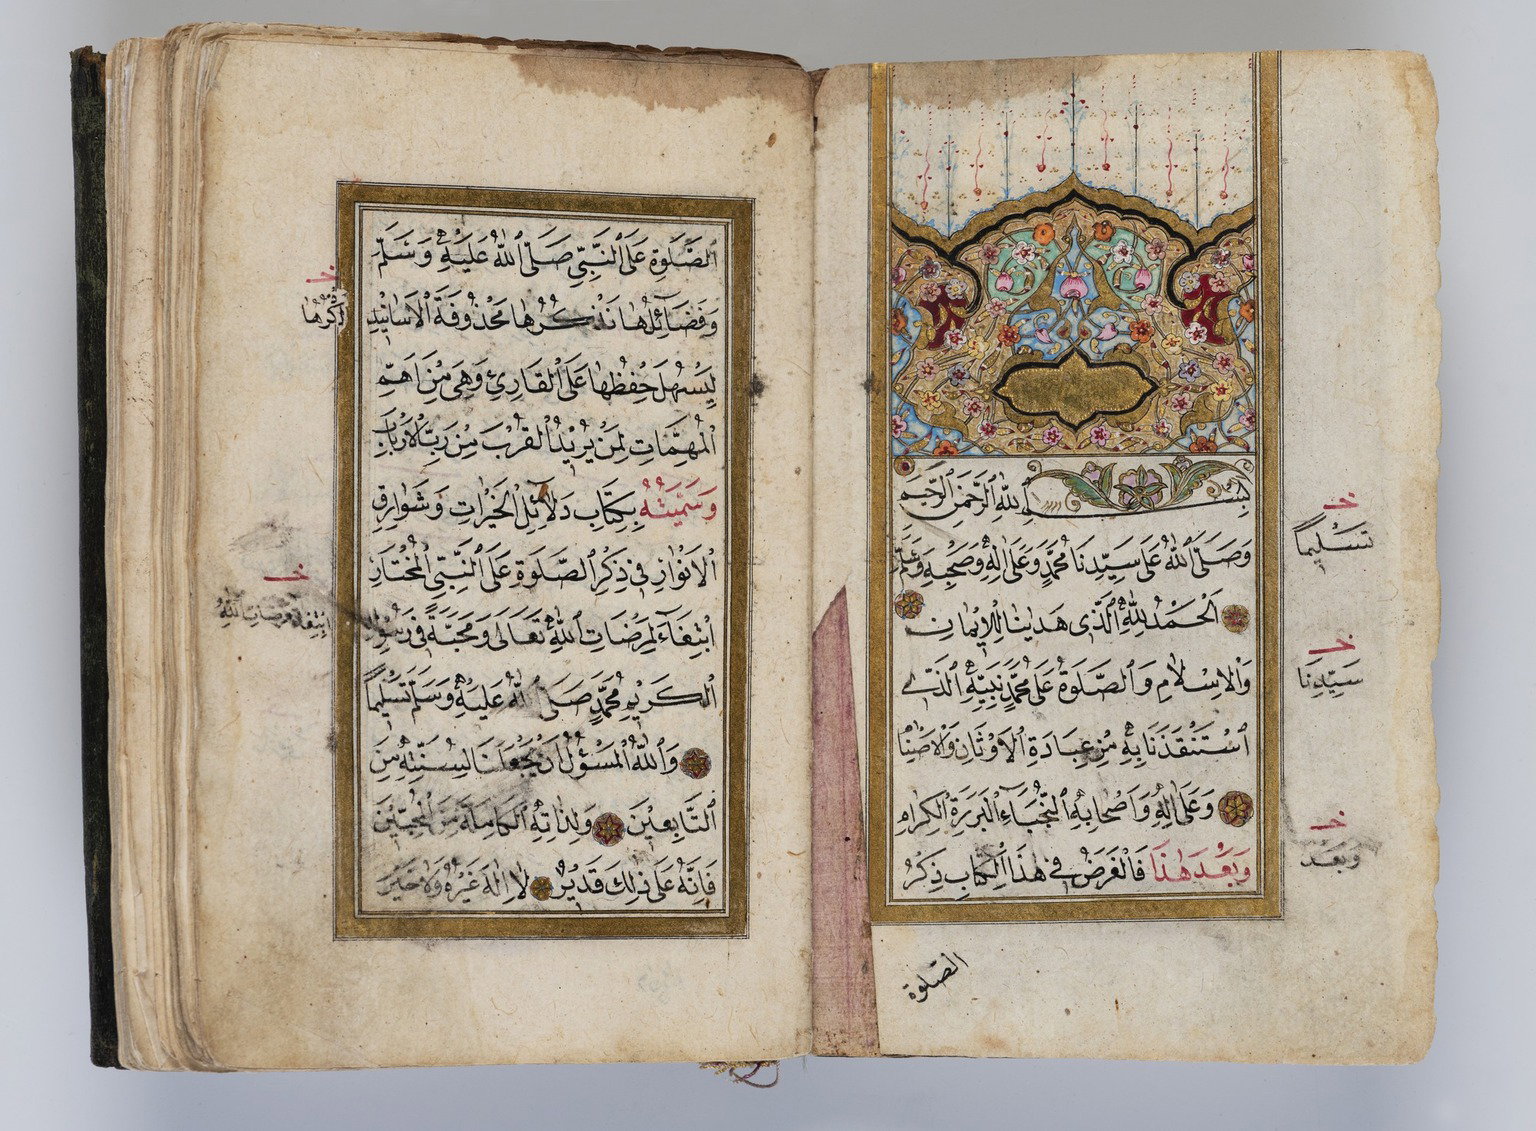 بِسْمِ اللّٰهِ الرَّحْمٰنِ الرَّحِيمِ
وَصَلَّى اللّٰهُ عَلَى سَيِّدِنَا مُحَمَّدٍ وَعَلَى اٰلِهِ وَصَحْبِهِ وَسَلَّمَ
اَلْحَمْدُ لِلّٰهِ الَّذِى هَدٰينَا لِلْاِيْمَانِ
وَالْاِسْلَامِ وَالصَّلٰوةُ عَلَى مُحَمَّدٍ نَبِيِّهِ الَّذِى
اسْتَنْقَذَنَا بِهِ مِنْ عِبَادَةِ الْاَوْثَانِ وَالْاَصْنَامِ
وَعَلَى اٰلِهِ وَاَصْحَابِهِ النُّجَبَاءِ الْبَرَرَةِ الْكِرَامِ
وَبَعْدَ هٰذَا فَالْغَرَضُ فِى هٰذَا الْكِتَابِ ذِكْرُ
تَسْلِيمًا
سَيِّدِنَا
وَبَعْدُ
الصّلوة
اَلصَّلٰوةِ عَلَى النَّبِيِّ صَلَّى اللّٰهُ عَلَيْهِ وَسَلَّمَ
وَفَضَائِلُهَا نَذْكُرُهَا مَحْذُوفَةَ الْاَسَانِيْدِ
لِيَسْهُلَ حِفْظُهَا عَلَى الْقَارِئِ وَهِىَ مِنْ اَهَمِّ
الْمُهِمَّاتِ لِمَنْ يُرِيْدُ الْقُرْبَ مِنْ رَبِّ الْاَرْبَابِ
وَسَمَّيْتُهُ بِكِتَابِ دَلَائِلِ الْخَيْرَاتِ وَشَوَارِقِ
الْاَنْوَارِ فِى ذِكْرِ الصَّلٰوةِ عَلَى النَّبِيِّ الْمُخْتَارِ
ابْتِغَاءً لِمَرْضَاتِ اللّٰهِ تَعَالَى وَمَحَبَّةً فِى رَسُوْلِهِ
الْكَرِيْمِ مُحَمَّدٍ صَلَّى اللّٰهُ عَلَيْهِ وَسَلَّمَ تَسْلِيْمًا
وَاللّٰهُ الْمَسْؤُلُ اَنْ يَجْعَلَنَا لِسُنَّتِهِ مِنَ
التَّابِعِيْنَ وَلِذَاتِهِ الْكَامِلَةِ مِنَ الْمُحِبِّيْنَ
فَاِنَّهُ عَلَى ذٰلِكَ قَدِيْرٌ لَا اِلٰهَ غَيْرُهُ وَلَا خَيْرَ
ذِكْرُهَا
ابْتِغَاءَ مَرْضَاتِ اللّٰهِ